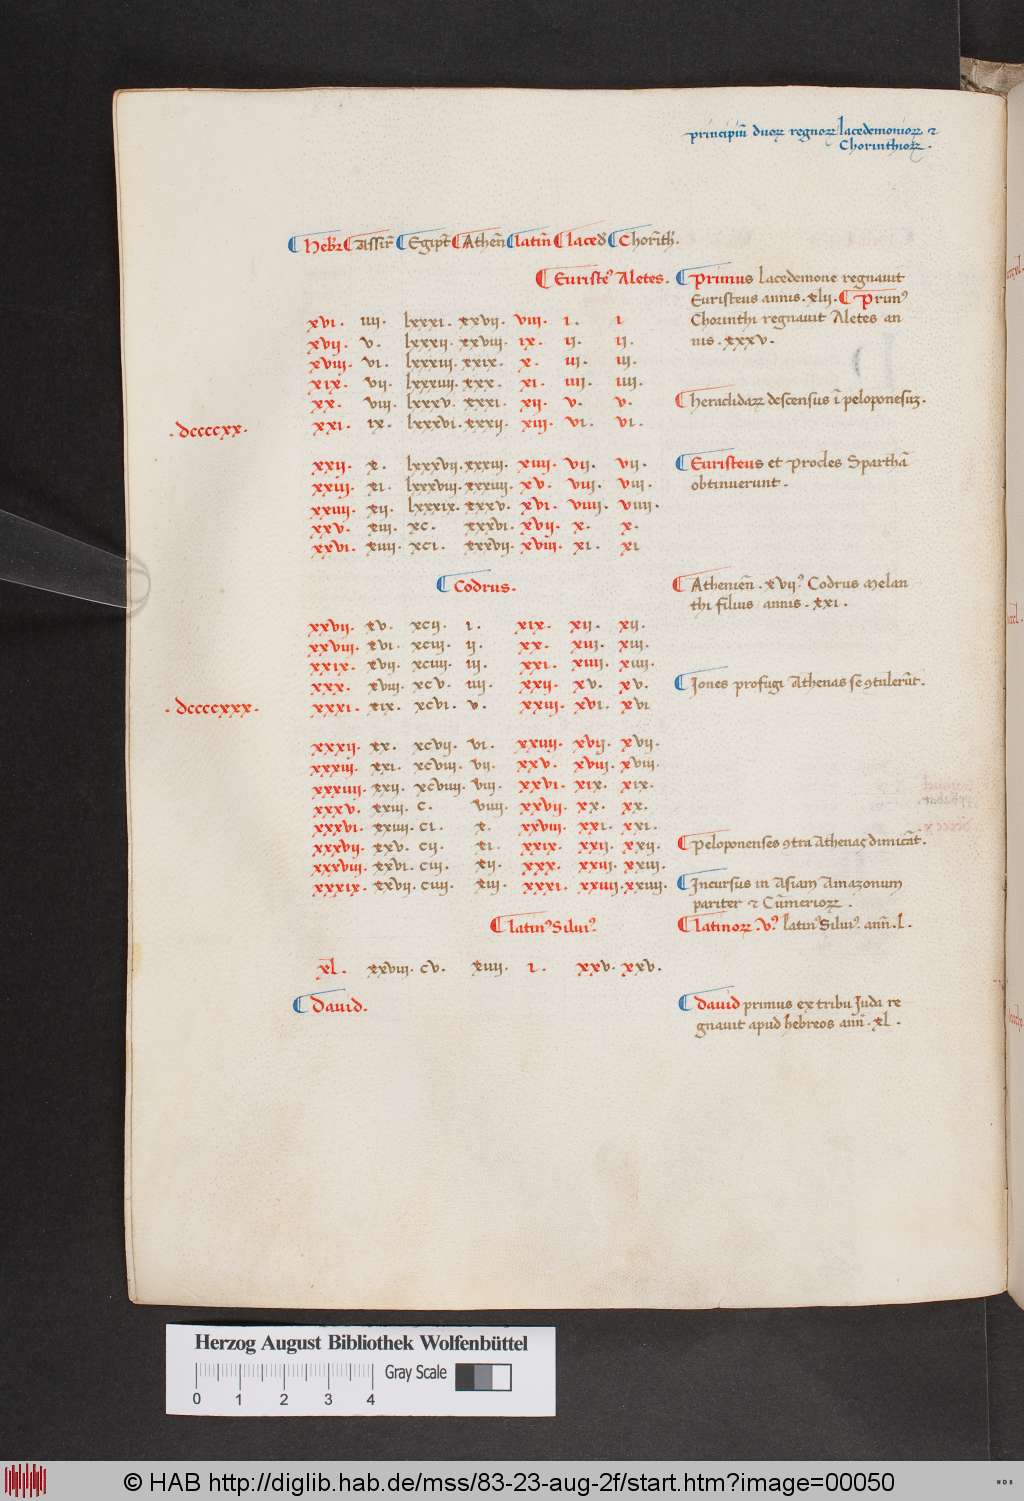 principiū duoꝝ regnoꝝ lacedemonioꝝ ⁊
Chorinthioꝝ .
Hebꝛ Assiꝛ̄ Egipt̄ Athen̄ latin̄ laced̄ Chorīth̄.
Euristeꝰ Aletes . Primus lacedemone regnauit
Euristeus annis . xlii . Primꝰ
xvi . iiii . lxxxi . xxvii . viii . i . i Chorinthi regnauit Aletes an
xvii . v . lxxxii . xxviii . ix . ii . ii . nis . xxxv .
xviii . vi . lxxxiii . xxix . x . iii . iii .
xix . vii . lxxxiiii . xxx . xi . iiii . iiii .
xx . viii . lxxxv . xxxi . xii . v . v . Heraclidaꝝ descensus ī peloponesuꝫ .
. dccccxx . xxi . ix . lxxxvi . xxxii . xiii . vi . vi .
xxii . x . lxxxvii . xxxiii . xiiii . vii . vii . Euristeus et procles Sparthā
xxiii . xi . lxxxviii . xxxiiii . xv . viii . viii . obtinuerunt .
xxiiii . xii . lxxxix . xxxv . xvi . viiii . viiii .
xxv . xiii . xc . xxxvi . xvii . x . x .
xxvi . xiiii . xci . xxxvii . xviii . xi . xi
Codrus . Athenien̄ . xviiꝰ Codrus Melan
thi filius annis . xxi .
xxvii . xv . xcii . i . xix . xii . xii .
xxviii . xvi . xciii . ii . xx . xiii . xiii .
xxix . xvii . xciiii . iii . xxi . xiiii . xiiii .
xxx . xviii . xcv . iiii . xxii . xv . xv . Iones profugi Athenas se ꝯtulerūt .
. dccccxxx . xxxi . xix . xcvi . v . xxiii . xvi . xvi
xxxii . xx . xcvii . vi . xxiiii . xvii . xvii .
xxxiii . xxi . xcviii . vii . xxv . xviii . xviii .
xxxiiii . xxii . xcviiii . viii . xxvi . xix . xix .
xxxv . xxiii . c . viiii . xxvii . xx . xx .
xxxvi . xxiiii . ci . x . xxviii . xxi . xxi .
xxxvii . xxv . cii . xi . xxix . xxii . xxii . Peloponenses ꝯtra Athenas dimicāt .
xxxviii . xxvi . ciii . xii . xxx . xxiii . xxiii .
xxxix . xxvii . ciiii . xiii . xxxi . xxiiii . xxiiii . Incursus in Asiam Amazonum
pariter ⁊ Cūmerioꝝ .
Latinꝰ Siluiꝰ . Latinoꝝ . vꝰ latinꝰ Siluiꝰ . ann̄ . l .
xl . xxviii . cv . xiiii . i . xxv . xxv .
Dauid . Dauid primus ex tribu Iuda re
gnauit apud hebreos ann̄ . xl .
Herzog August Bibliothek Wolfenbüttel
Gray Scale
0 1 2 3 4
© HAB http://diglib.hab.de/mss/83-23-aug-2f/start.htm?image=00050